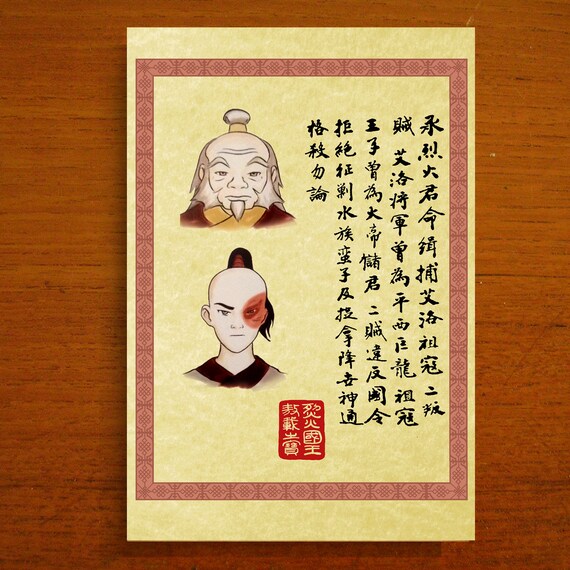 承烈火君命緝捕艾洛祖寇 二叛
賊 艾洛將軍曾為平西巨龍 祖寇
王子曾為火帝儲君 二賊違反國令
拒絕征剿水族蠻子及捉拿降世神通
格殺勿論
烈火國王